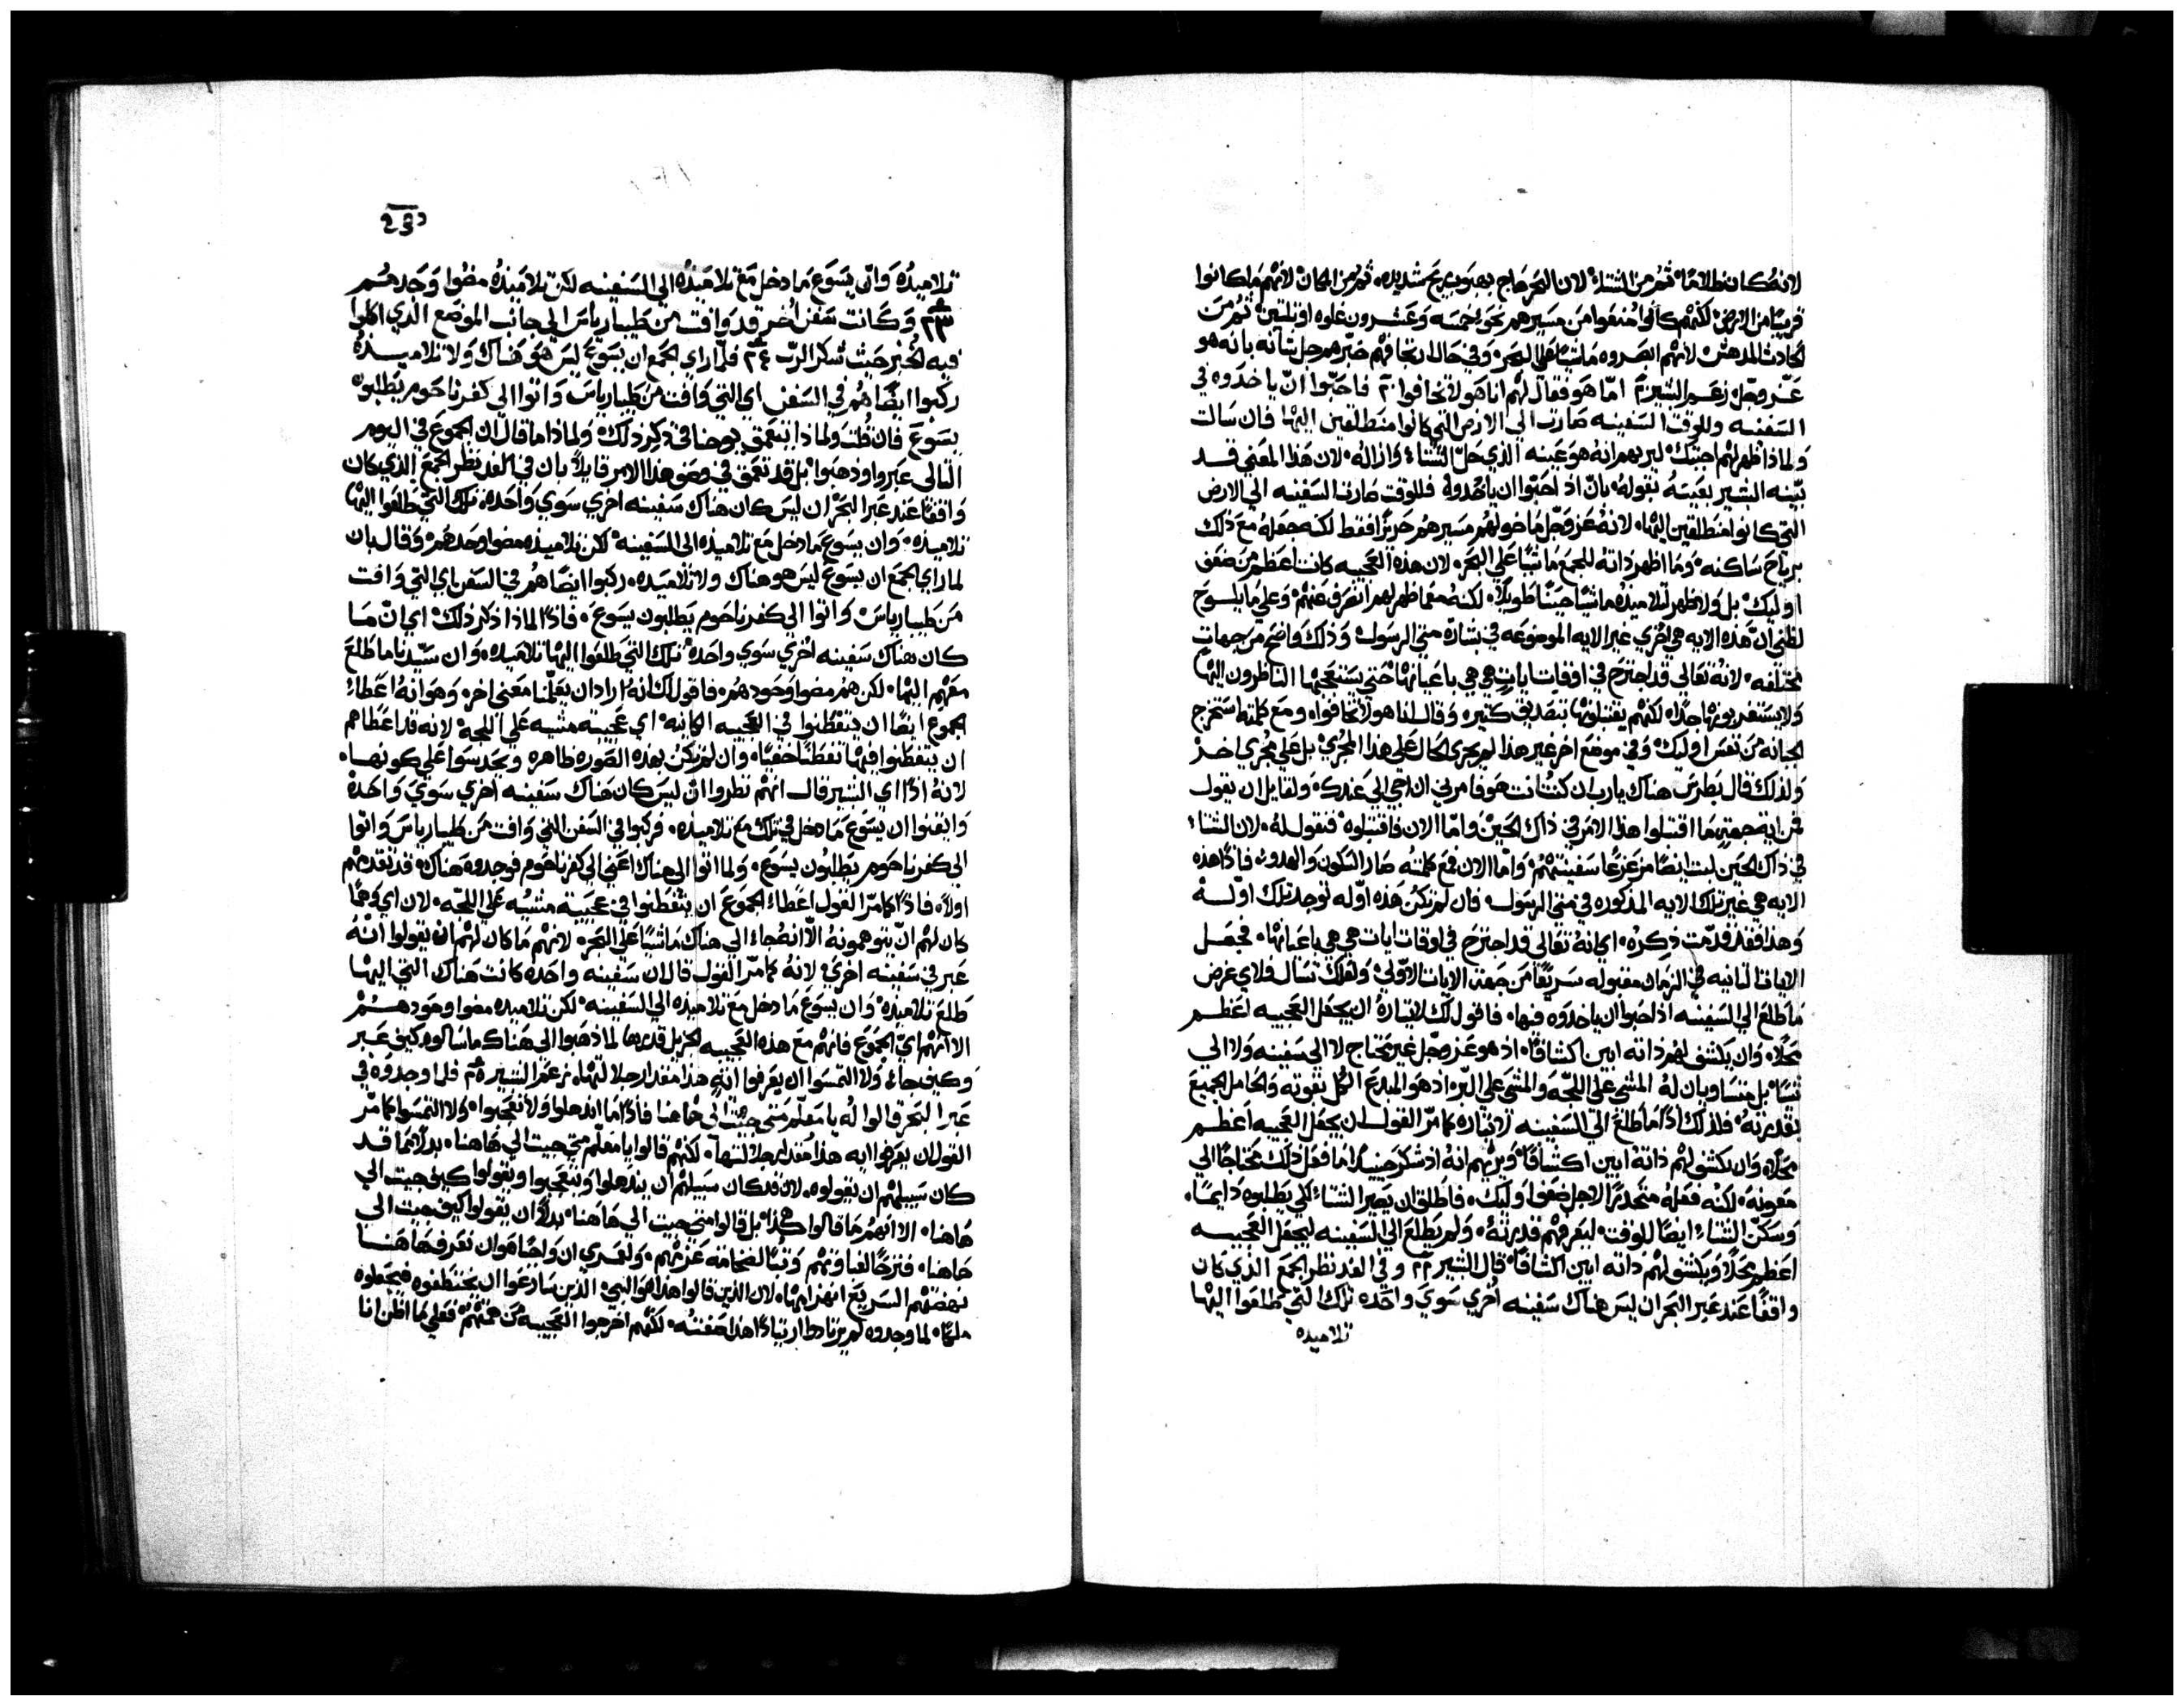 لانه كان ظلامًا ثم من الشتاء لان البحر هاج بهبوب ريح شديده ثم من المكان لانهم ما كانوا
قريبًا من الارض لكنهم كانوا امنعوا من مسيرهم نحو خمسه وعشرون غلوه او ثلثين ثم من
الحادث المدهش لانهم ابصروه ماشيًا على البحر وفي حال ارتجافهم خبرهم جل ثناؤه بانه هو
عز وجل زعم البشير اما هو فقال لهم انا هو لا تخافوا فاحبوا ان ياخدوه في
السفينه وللوقت السفينه صارت الي الارض التي كانوا منطلقين اليها فان سالت
ولماذا ظهر لهم اجبتك ليريهم انه هو عينه الذي حل الشتاء وازاله لان هذا المعني قد
بينه البشير بعينه بقوله بان اذ احبوا ان ياخدوه فللوقت صارت السفينه الي الارض
التي كانوا منطلقين اليها لانه عز وجل ما خولهم مسيرهم حريزًا فقط لكنه جعله مع ذلك
برياح ساكنه وما اظهر ذاته للجمع ماشيًا علي البحر لان هذه العجيبه كانت اعظم من ضعف
اوليك بل ولا ظهر لتلاميذه ماشيًا حينًا طويلًا لكنه معما ظهر لهم انصرف عنهم وعلي ما يلوح
لظني ان هذه الايه هي اخري غير الايه الموضوعه في بشارة متي الرسول وذلك واضح من جهات
مختلفه لانه تعالي قد اجترح في اوقات ايات هي هي باعيانها حتي يستعجبها الناظرون اليها
ولا يستغربونها جدًا لكنهم يقتبلونها بتصديق كثير وقال انا هو لا تخافوا ومع كلمته استخرج
الجبانه من نفس اوليك وفي موضع اخر غير هذا لم يجري الحال علي هذا المجري بل علي مجري اخر
ولذلك قال بطرس هناك يارب ان كنت انت هو فامرني ان اجي الي عندك ولقايل ان يقول
من اية جهة ما اقتبلوا هذا الامر في ذاك الحين واما الان فاقتبلوه فنقول له لان الشتاء
في ذاك الحين لبث ايضًا مزعزعًا سفينتهم واما الان فمع كلمته صار السكون والهدوء فاذًا هذه
الايه هي غير تلك الايه المذكوره في متي الرسول فان لم تكن هذه اوله توجد تلك اوله
وهذا فقد قدمت ذكره اي انه تعالي قد اجترح في اوقات ايات هي هي باعيانها فجعل
الايات الثانيه في الزمان مقبوله سريعًا من جهة الايات الاولي ولعلك تسال ولاي غرض
ما طلع الي السفينه اذ احبوا ان ياخدوه فيها فاقول لك لايثاره ان يجعل العجيبه اعظم
محلًا وان يكشف لهم ذاته ابين اكشافًا اذ هو عز وجل غير محتاج لا الي سفينه ولا الي
شيء بل متساويان له المشي علي اللجه والمشي علي البر اذ هو المبدع الكل بقوته والحامل الجميع
بقدرته فلذلك اذًا ما طلع الي السفينه لايثاره كما مر القول ان يجعل العجيبه اعظم
محلًا وان يكشف لهم ذاته ابين اكشافًا ويريهم انه اذ شكر حينيذ ما فعل ذلك محتاجًا الي
معونه لكنه فعله متحدرًا لاجل ضعف اوليك فاطلق ان يصير الشتاء لكي يطلبوه دايمًا
وسكن الشتاء ايضًا للوقت ليعرفهم قدرته ولم يطلع الي السفينه ليجعل العجيبه
اعظم محلًا ويكشف لهم ذاته ابين اكشافًا قال البشير وفي الغد نظر الجمع الذي كان
واقفًا عند عبر البحر ان ليس هناك سفينه اخري سوي واحده تلك التي طلعوا اليها
تلاميده
تلاميذه وان يسوع ما دخل مع تلاميذه الي السفينه لكن تلاميذه مضوا وحدهم
وكانت سفن اخر قد وافت من طيبارياس الي جانب الموضع الذي اكلوا
فيه الخبز حيث شكر الرب فلما راي الجمع ان يسوع ليس هو هناك ولا تلاميذه
ركبوا ايضًا هم في السفن اي التي وافت من طيبارياس واتوا الي كفرناحوم يطلبون
يسوع فان قلت ولماذا يتعمق يوحنا في ذكر ذلك ولماذا ما قال ان الجموع في اليوم
التالي عبروا وذهبوا بل قد تعمق في وصف هذا الامر قايلًا بان في الغد نظر الجمع الذي كان
واقفًا عند عبر البحر ان ليس كان هناك سفينه اخري سوي واحده تلك التي طلعوا اليها
تلاميذه وان يسوع ما دخل مع تلاميذه الي السفينه لكن تلاميذه مضوا وحدهم وقال بان
لما راي الجمع ان يسوع ليس هو هناك ولا تلاميذه ركبوا ايضًا هم في السفن اي التي وافت
من طيبارياس واتوا الي كفرناحوم يطلبون يسوع فاذًا لماذا ذكر ذلك اي ان ما
كان هناك سفينه اخري سوي واحده تلك التي طلعوا اليها تلاميذه وان سيدنا ما طلع
معهم اليها لكن هم مضوا وحودهم فاقول لك انه اراد ان يعلمنا معني اخر وهو انه اعطاء
الجموع ايضًا ان يتفطنوا في العجيبه الكاينه اي عجيبة مشيه علي اللجه لانه قد اعطاهم
ان يتفطنوا فيها تفطنًا خفيًا وان لم تكن بهذه الصوره ظاهره ويحدسوا علي كونها
لانه اذًا اي البشير قال انهم نظروا ان ليس كان هناك سفينه اخري سوي واحده
وايقنوا ان يسوع ما دخل في تلك مع تلاميذه فركبوا في السفن التي وافت من طيبارياس واتوا
الي كفرناحوم يطلبون يسوع ولما اتوا الي هناك اعني الي كفرناحوم فوجدوه هناك قد تقدمهم
اولًا فاذًا كما مر القول اعطاء الجموع ان يتفطنوا في عجيبة مشيه علي اللجه لان اي وهمًا
كان لهم ان يتوهمونه الا انه جاء الي هناك ماشيًا علي البحر لانهم ما كان لهم ان يقولوا انه
عبر في سفينه اخري لانه كما مر القول قال ان سفينه واحده كانت هناك التي اليها
طلع تلاميذه وان يسوع ما دخل مع تلاميذه الي السفينه لكن تلاميذه مضوا وحودهم
الا انهم اي الجموع فانهم مع هذه العجيبه الجزيل قدرها لما ذهبوا الي هناك ما سالوه كيف عبر
وكيف جاء ولا التمسوا ان يعرفوا ايه هذا مقدار جلالتها زعم البشير فلما وجدوه في
عبر البحر قالوا له يا معلم متي جيت الي هاهنا فاذًا ما اندهلوا ولا تعجبوا ولا التمسوا كما مر
القول ان يعرفوا ايه هذا مقدار جلالتها لكنهم قالوا يا معلم متي جيت الي هاهنا بدلًا مما قد
كان سبيلهم ان يقولوه لان قد كان سبيلهم ان يندهلوا ويتعجبوا ويقولوا كيف جيت الي
هاهنا الا انهم ما قالوا هكذا بل قالوا متي جيت الي هاهنا بدلًا ان يقولوا كيف جيت الي
هاهنا فترحًا لغباوتهم وتبًا لسخافة عزمهم ولعمري ان واجبًا هو ان نعرف هاهنا
نهضتهم السريع انهزامها لان الذين قالوا هذا هو النبي الذين سارعوا ان يختطفوه فيجعلوه
ملكًا لما وجدوه لم يرتادوا ارتيادًا هذا صفته لكنهم اخرجوا العجيبه من همتهم فعلي ما اظن انا